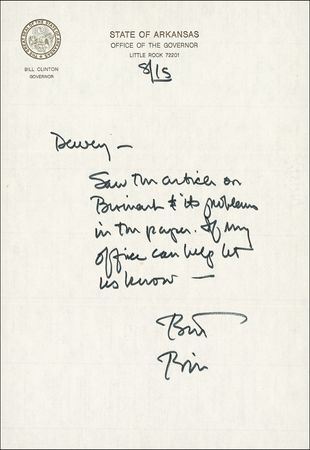 STATE OF ARKANSAS
OFFICE OF THE GOVERNOR
LITTLE ROCK 72201
BILL CLINTON
GOVERNOR
8/15
Dewey —
Saw the article on
& its problems
in the paper. If my
office can help let
us know —
Best
Bill